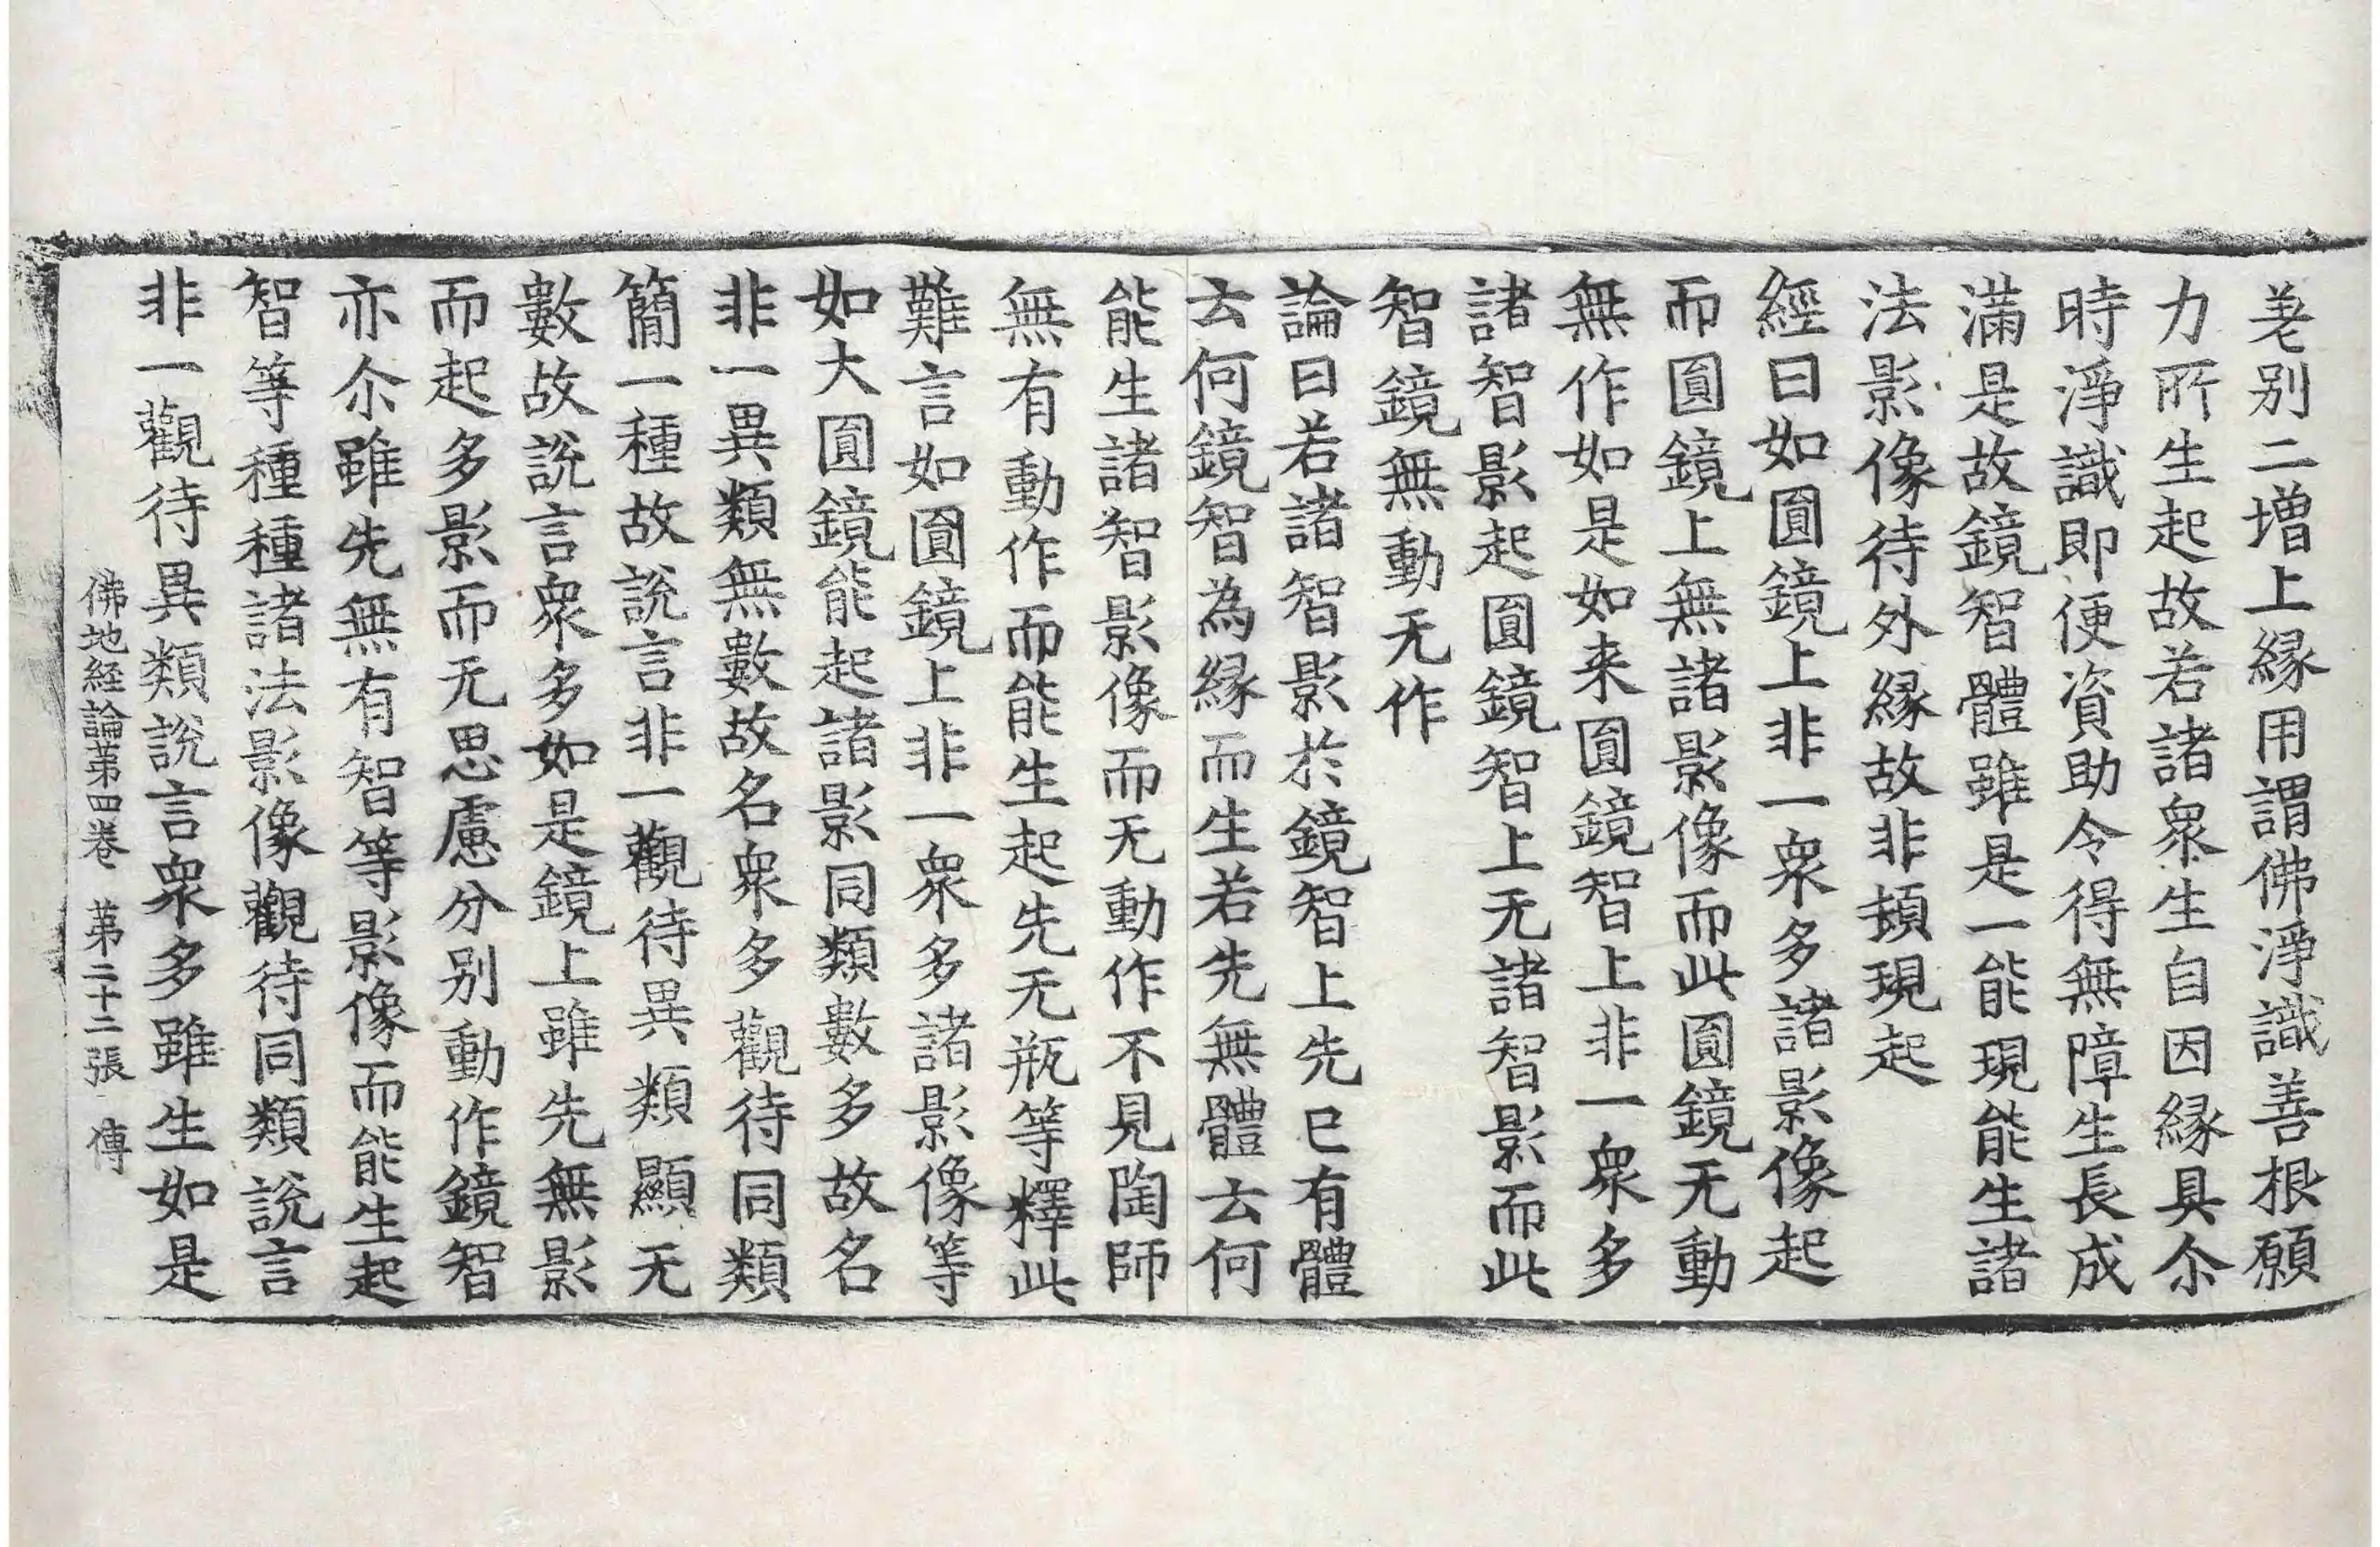 差别二增上縁用謂佛淨識善根願
力所生起故若諸衆生自因縁具尒
時淨識即便資助令得無障生長成
滿是故鏡智體雖是一能現能生諸
法影像待外縁故非頓現起
經曰如圓鏡上非一衆多諸影像起
而圓鏡上無諸影像而此圓鏡无動
無作如是如来圓鏡智上非一衆多
諸智影起圓鏡智上无諸智影而此
智鏡無動无作
論曰若諸智影於鏡智上先已有體
云何鏡智為縁而生若先無體云何
能生諸智影像而无動作不見陶師
無有動作而能生起先无瓶等釋此
難言如圓鏡上非一衆多諸影像等
如大圓鏡能起諸影同類數多故名
非一異類無數故名衆多觀待同類
簡一種故說言非一觀待異類顯无
數故說言衆多如是鏡上雖先無影
而起多影而无思慮分别動作鏡智
亦尒雖先無有智等影像而能生起
智等種種諸法影像觀待同類說言
非一觀待異類說言衆多雖生如是
佛地経論苐四卷 苐二十二張 傳